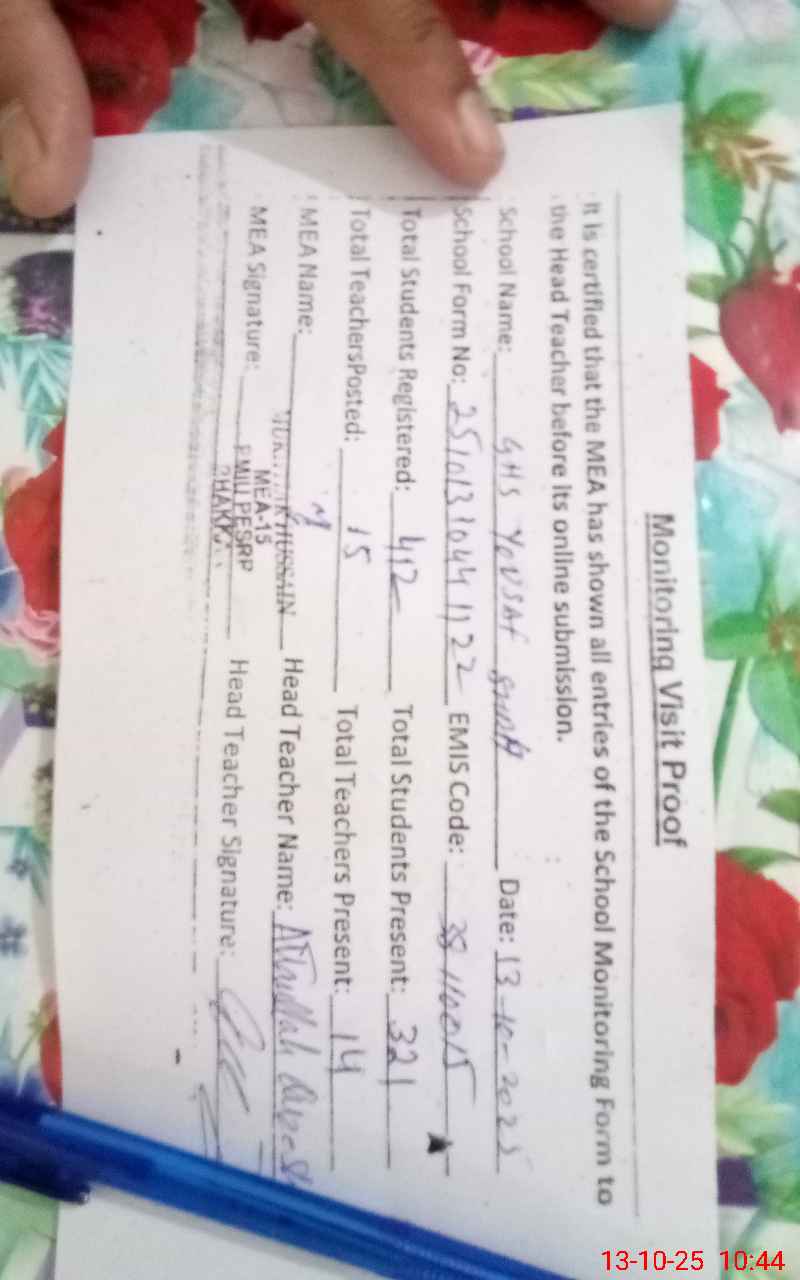 Monitoring Visit Proof
It is certified that the MEA has shown all entries of the School Monitoring Form to
the Head Teacher before its online submission.
School Name: GHS YOUSAF Date: 13-10-2025
School Form No: 25101310441122 EMIS Code: 38110015
Total Students Registered: 412 Total Students Present: 321
Total TeachersPosted: 15 Total Teachers Present: 14
MEA Name: HUSSAIN Head Teacher Name:
MEA-15
MEA Signature: PMIU PESRP Head Teacher Signature:
BHAKKAR
13-10-25 10:44